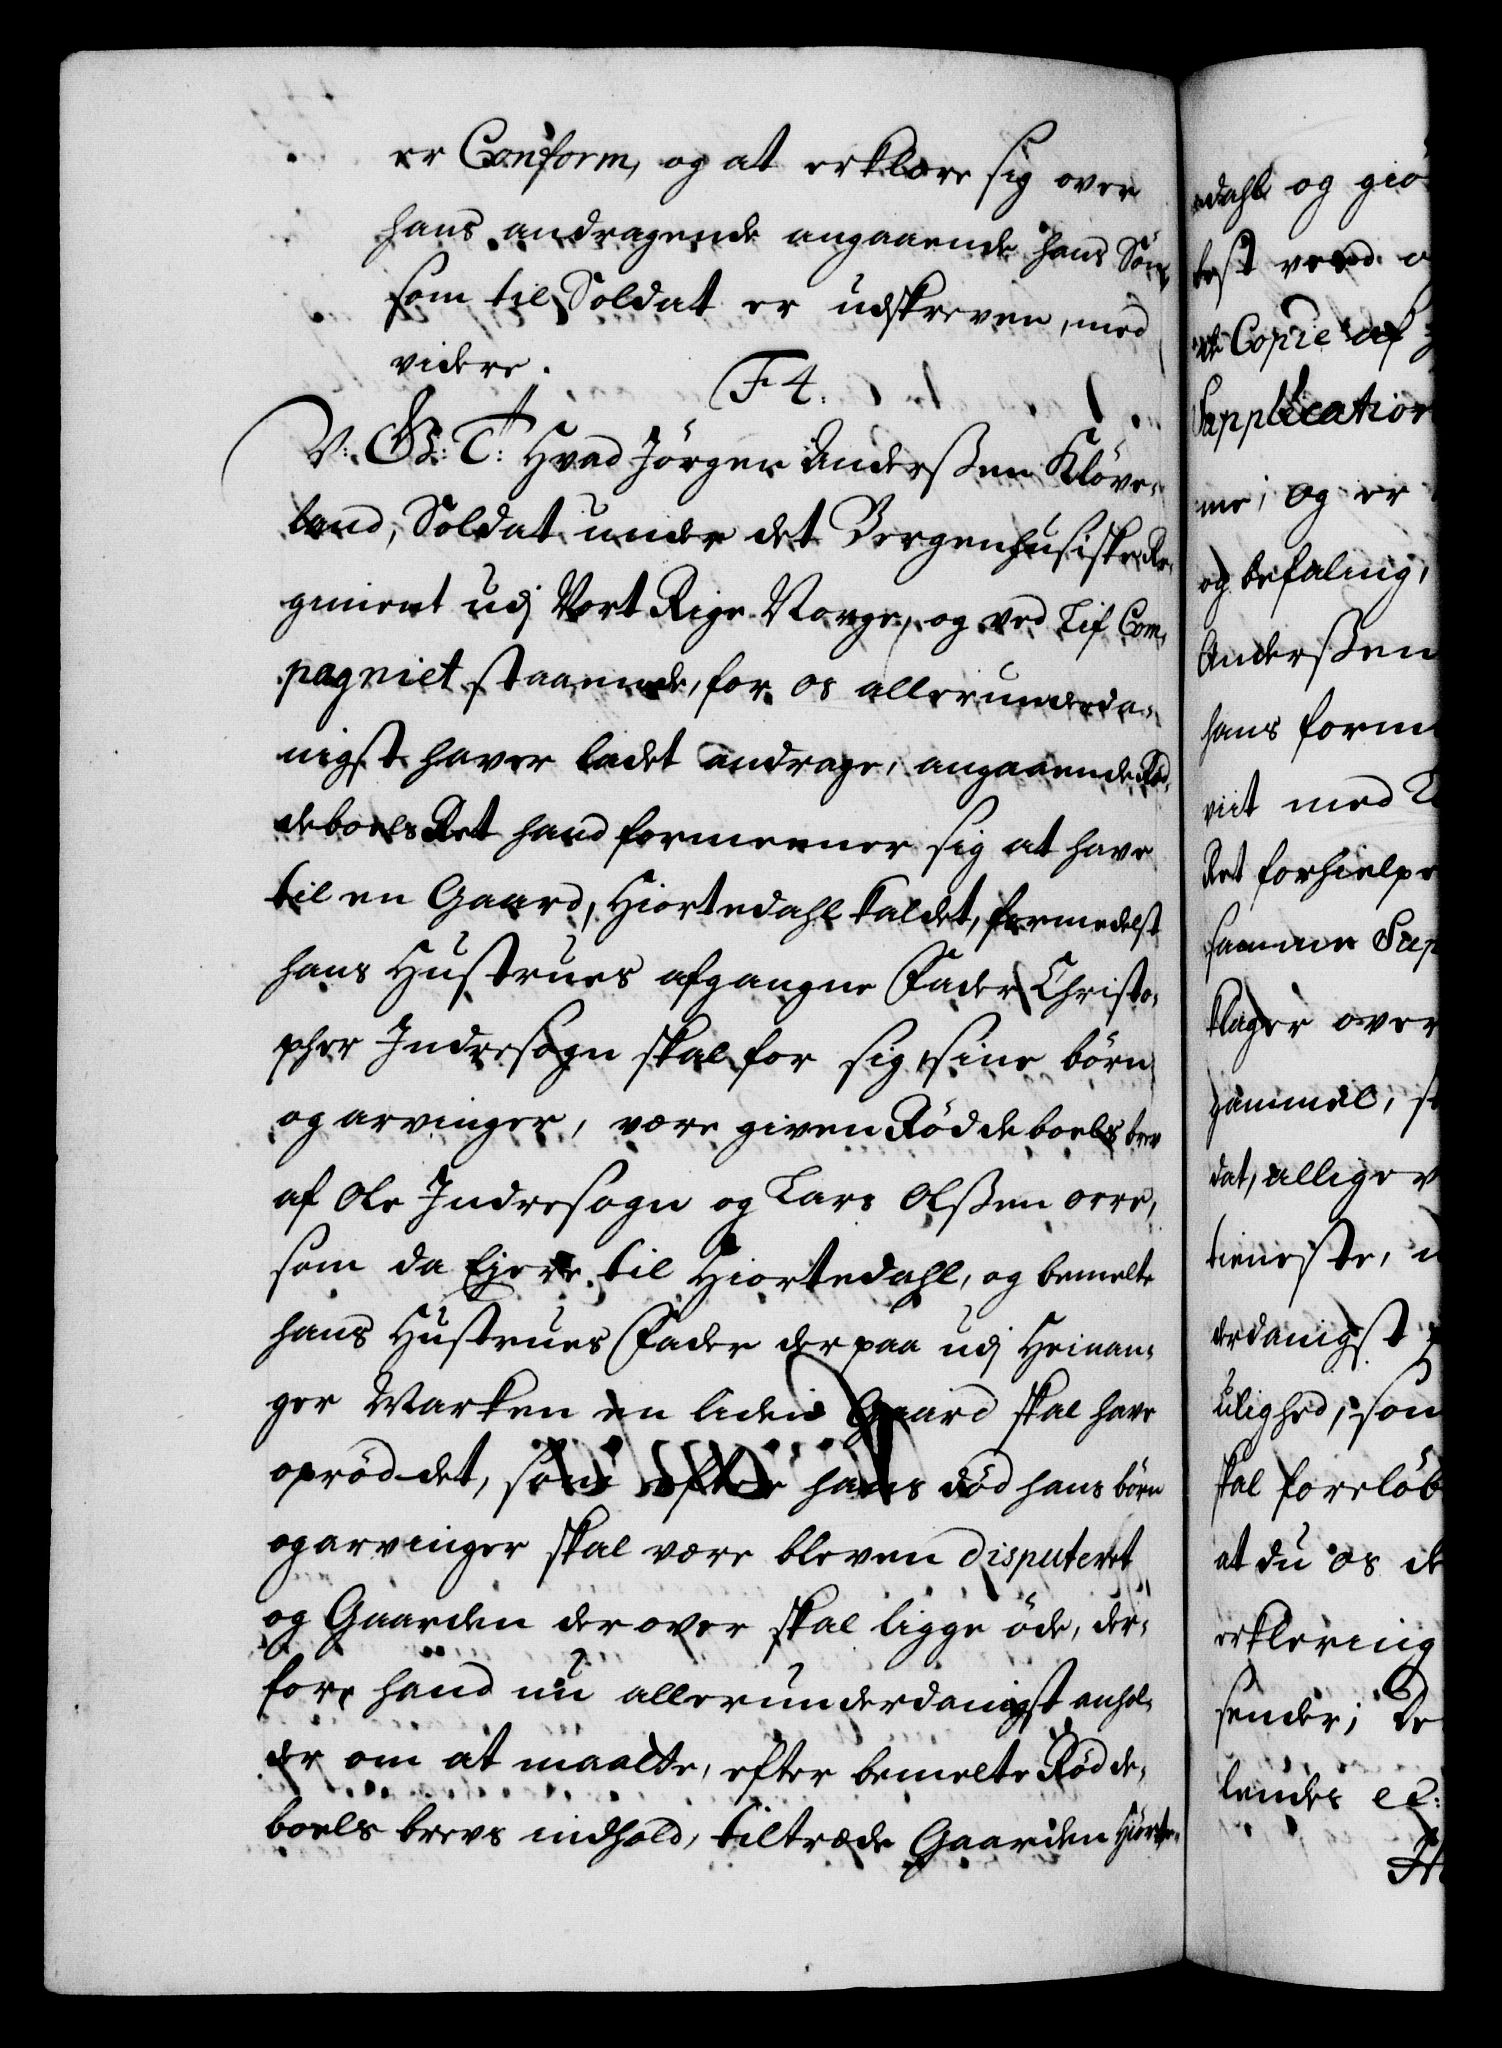 er Conform, og at erklære sig over
hans andragende angaaende hans Søn
som til Soldat er udskreven, med
videre.
F 4.
V: G: T: Hvad Jörgen Anderßen Klöve-
land, Soldat under det Bergenhusiske Re-
giment udj Vort Rige Norge, og ved Lif Com-
pagniet staaende, for os allerunderda-
nigst haver ladet andrage, angaaende Röd-
deboels Ret hand formeener sig at have
til en Gaard, Hiortedahl kaldet, formedelst
hans Hustrues afgangne Fader Christo-
pher Indresogn skal for sig, sine börn
og arvinger, være given Röddeboels brev
af Ole Indresogn og Lars Olßen orre,
som da Ejere til Hiortedahl, og bemelte
hans Hustrues Fader derpaa udj Heinan-
ger Marken en liden Gaard skal have
opröddet, som efter hans död hans börn
og arvinger skal være bleven disputeret
og Gaarden derover skal ligge öde, der-
fore hand nu allerunderdanigst anhol-
der om at maatte, efter bemelte Rödde-
boels brevs indhold, tiltræde Gaarden Hiorte-
dahl og giö
best veed o
de Copie af
Supplication
me; og er
og befaling,
Anderßen
hans form
viit med
Ret forhielpe
samme Sup
klager over
gammel, s
dat, allige v
tieneste,
derdanigst
ulighed, som
skal foreløb
at du os de
erklering
sender; De
lendes etc: